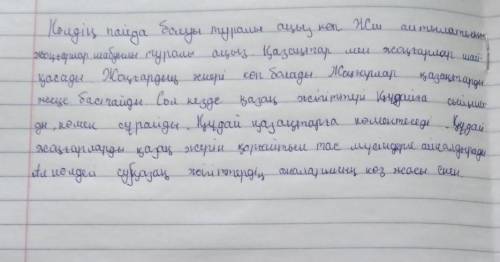 Көлдің пайда болуы туралы аңыз көп Жиі айтылатыны
жоңғарлар шабуылы туралы аңыз Қазақтар мен жоңғарлар шай-
қасады Жоңғардың әскері көп болады Жоңғарлар қазақтарды
жеңе бастайды Сол кезде қазақ жігіттері Құдайға сиынып
ды, көмек сұрайды. Құдай қазақтарға көмектеседі. Құдай
жоңғарларды қазақ жерін қорғайтын тас мүсіндерге айналдырады
Ал көлдегі су қазақ жігіттердің аналарының көз жасы екен.